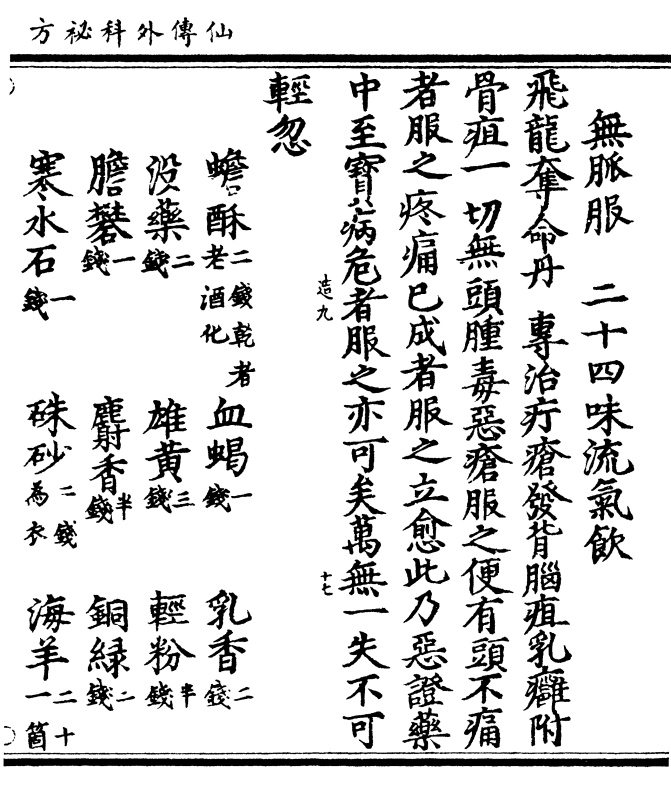 仙傳外科祕方
無脈服 二十四味流氣飲
飛龍奪命丹 專治疔瘡發背腦疽乳癰附
骨疽一切無頭腫毒惡瘡服之便有頭不痛
者服之疼痛已成者服之立愈此乃惡證藥
中至寶病危者服之亦可矣萬無一失不可
造九
十七
輕忽
蟾酥二錢乾者老酒化 血蝎一錢 乳香二錢
没藥二錢 雄黃三錢 輕粉半錢
膽礬一錢 麝香半錢 銅緑二錢
寒水石一錢 硃砂二錢為衣 海羊二十一箇